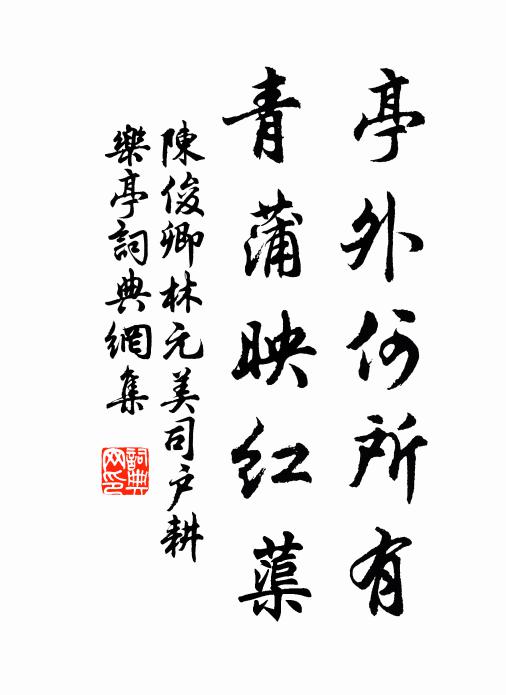 亭外何所有
青蒲映红蕖
陳俊卿林元美司户耕
樂亭詞典網集
詞典网印